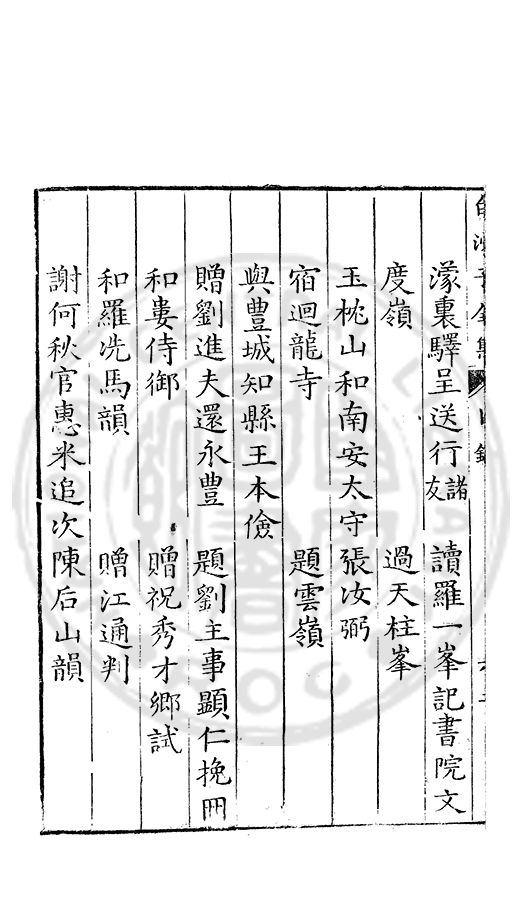 白沙子全集 目錄
濛裏驛呈送行諸友 讀羅一峯記書院文
度嶺 過天柱峯
玉枕山和南安太守張汝弼
宿迴龍寺 題雲嶺
與豐城知縣王本儉
贈劉進夫還永豐 題劉主事顯仁挽冊
和婁侍御 贈祝秀才鄉試
和羅洗馬韻 贈江通判
謝何秋官惠米追次陳后山韻